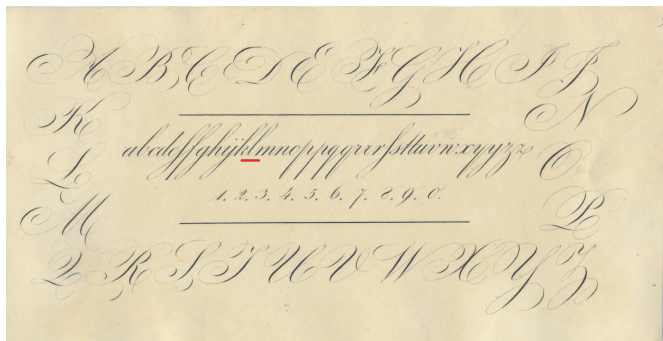 A B C D E F G H I J
K N
abcdeffghijklmnopppqqrrrsstttuvwxyyyzz
L O
1. 2. 3. 4. 5. 6. 7. 8. 9. 0.
M P
Q R S T U V W X Y Z